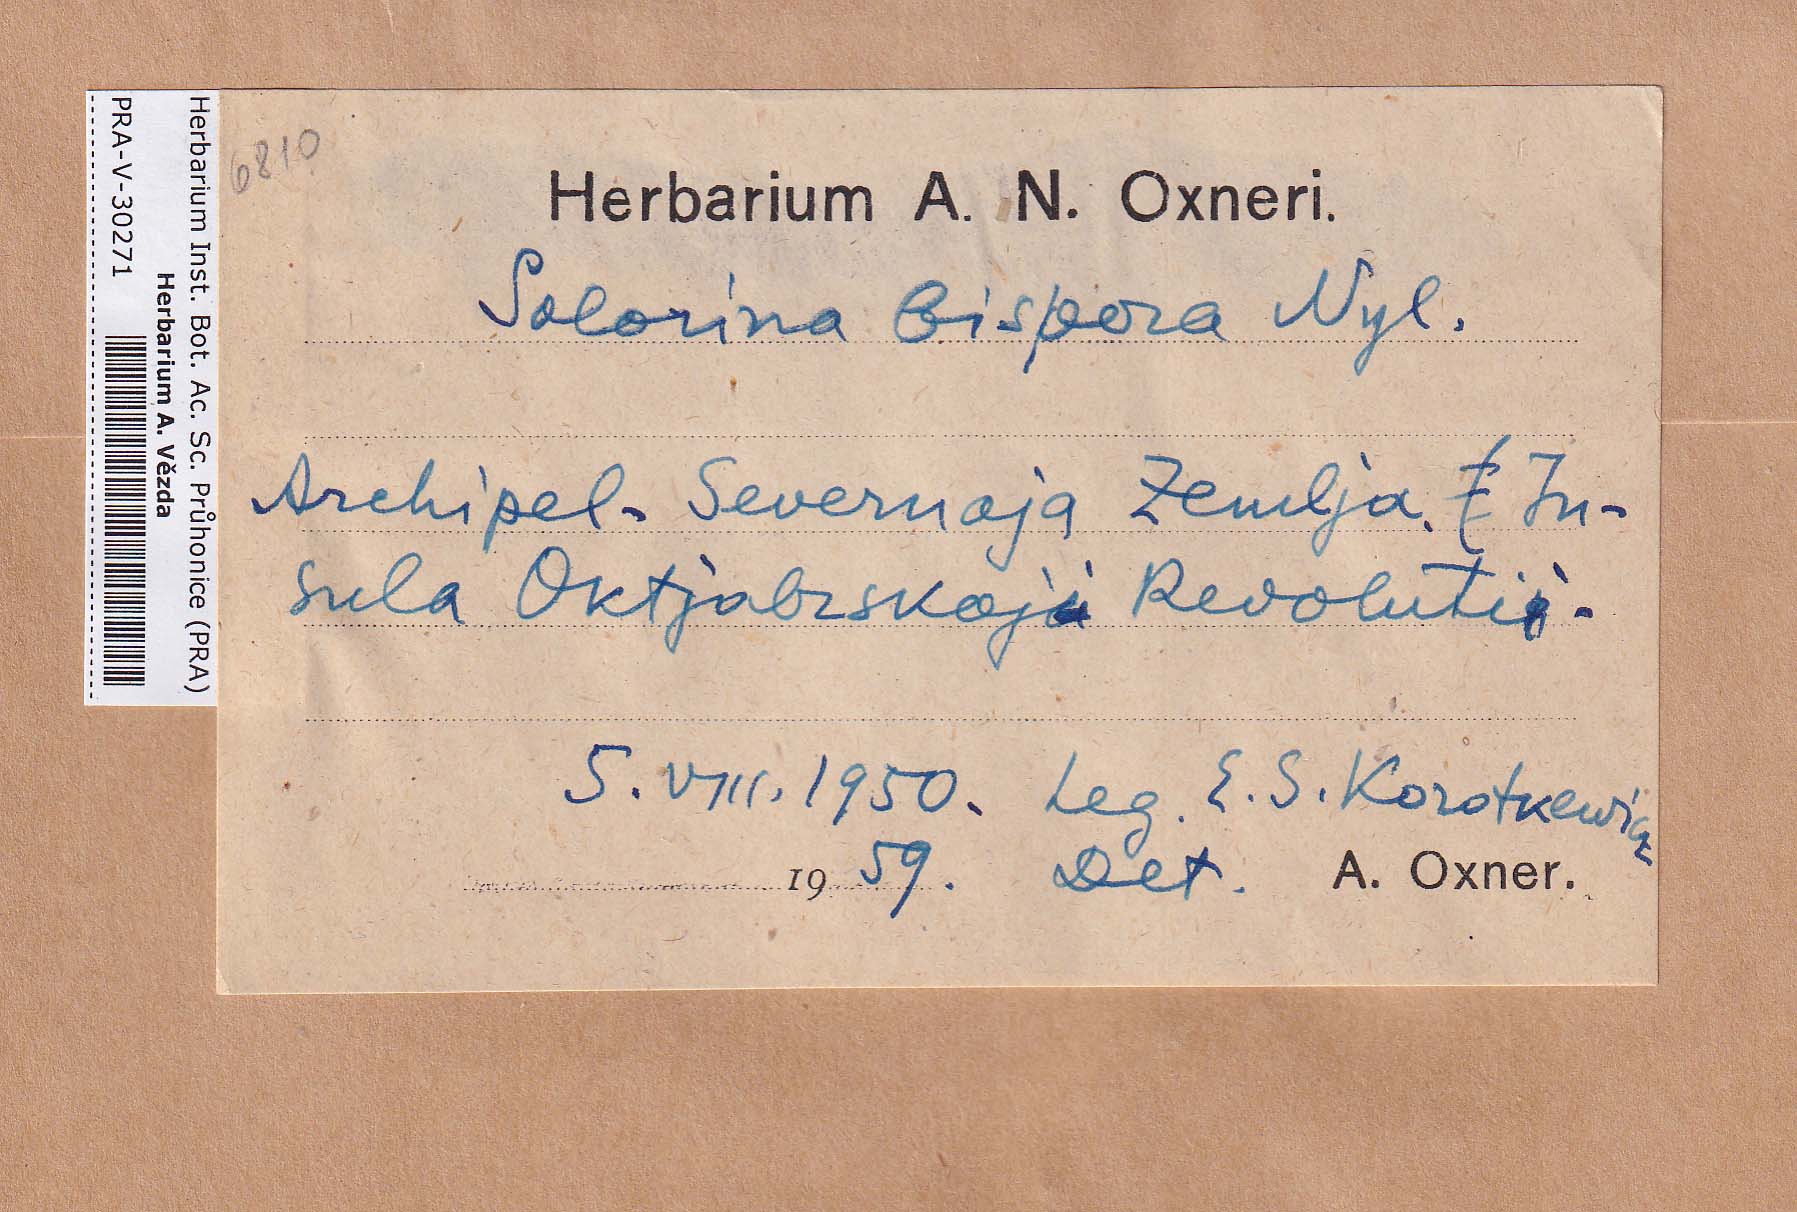 Herbarium Inst. Bot. Ac. Sc. Průhonice (PRA)
Herbarium A. Vězda
PRA-V-30271
6810
Herbarium A. N. Oxneri.
Solorina bispora Nyl.
Archipel. Severnaja Zemlja. In-
sula Oktjabrskoji Revolutii.
5. VIII. 1950. Leg. E. S. Korotkewicz
1959. Det. A. Oxner.